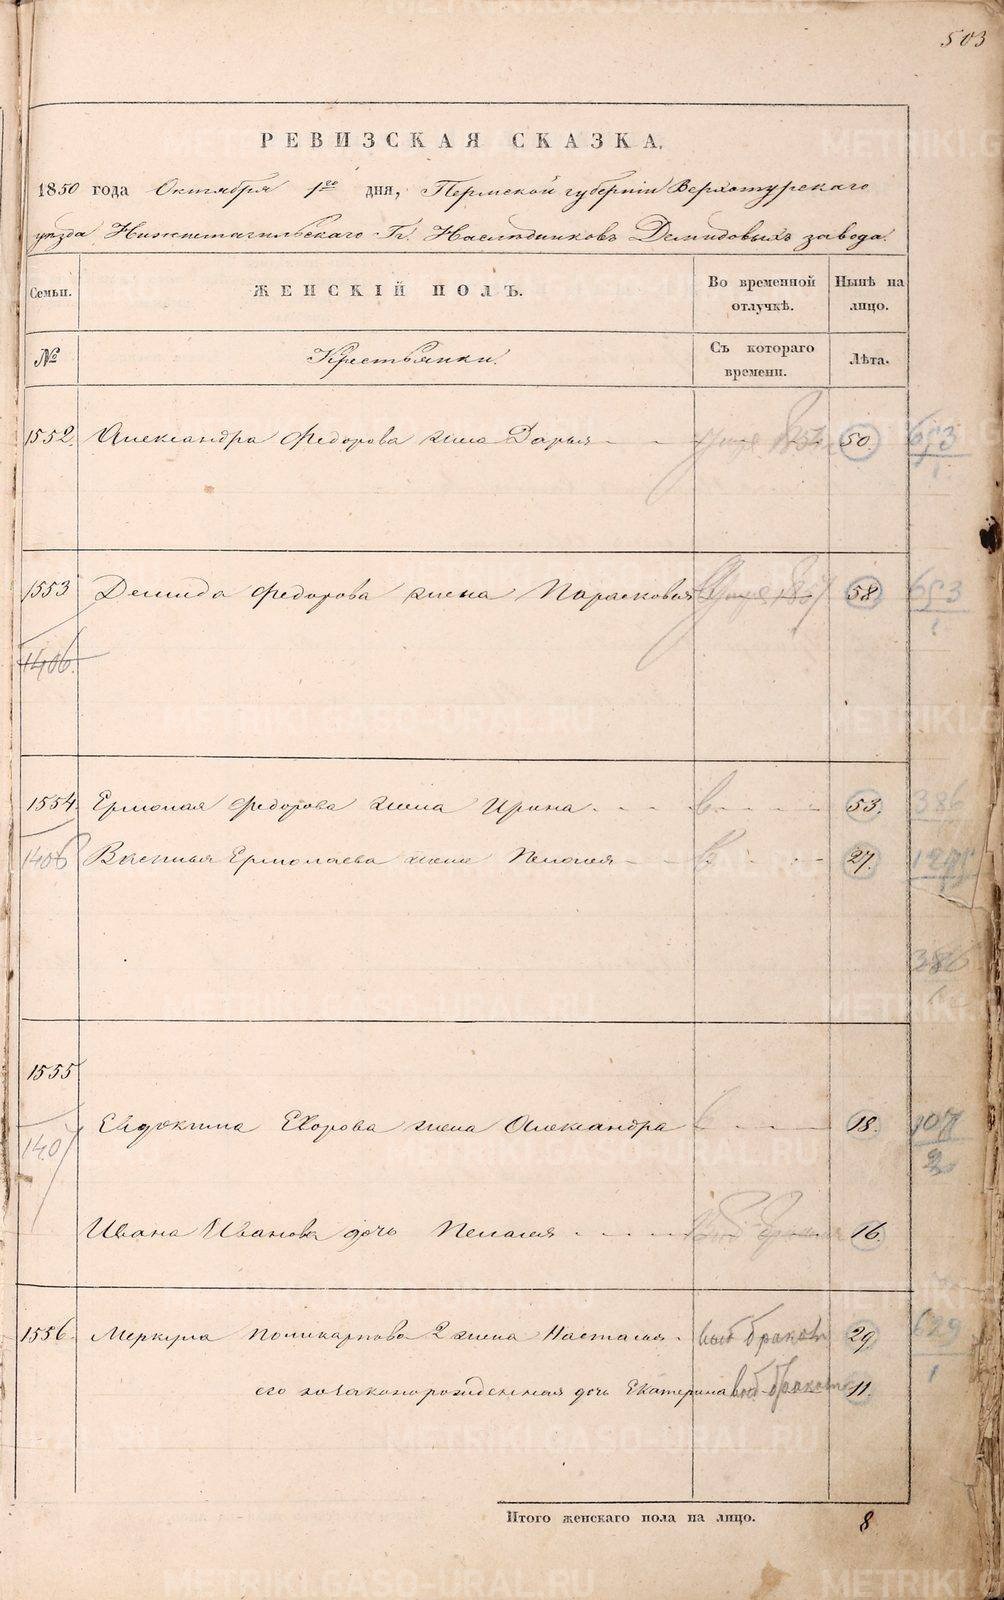 503
РЕВИЗСКАЯ СКАЗКА.
1850 года Октября 1го дня, Пермской губерніи Верхотурскаго
уѣзда Нижнетагильскаго Гг. Наслѣдниковъ Демидовыхъ завода.
Семьи. ЖЕНСКІЙ ПОЛЪ. Во временной отлучкѣ. Нынѣ на лицо.
№ Крестьянки. Съ котораго времени. Лѣта.
1552. Александра Федорова жена Дарья 50. 653
1
1553 Демида Федорова жена Парасковья 58. 653
1
1406.
1554. Ермолая Федорова жена Ирина 53. 386
1406 Василья Ермолаева жена Пелагея 27.
386
1555
Евдокима Егорова жена Александра 18. 107
2
1407
Ивана Иванова дочь Пелагея 16.
1556. Меркула Поликарпова 2 жена Настасья выб браком 29. 629
1
его незаконорожденная дочь Екатерина выб. браком 11.
Итого женскаго пола на лицо. 8
METRIKI.GASO-URAL.RU